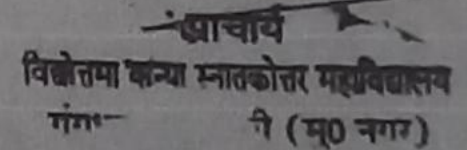 प्राचार्य
विद्योत्तमा कन्या स्नातकोत्तर महाविद्यालय
(मु0 नगर)